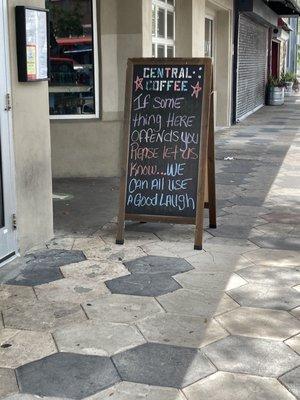 CENTRAL
COFFEE
If some
thing Here
offends you
Please let us
Know...WE
Can All use
A Good LAUGH